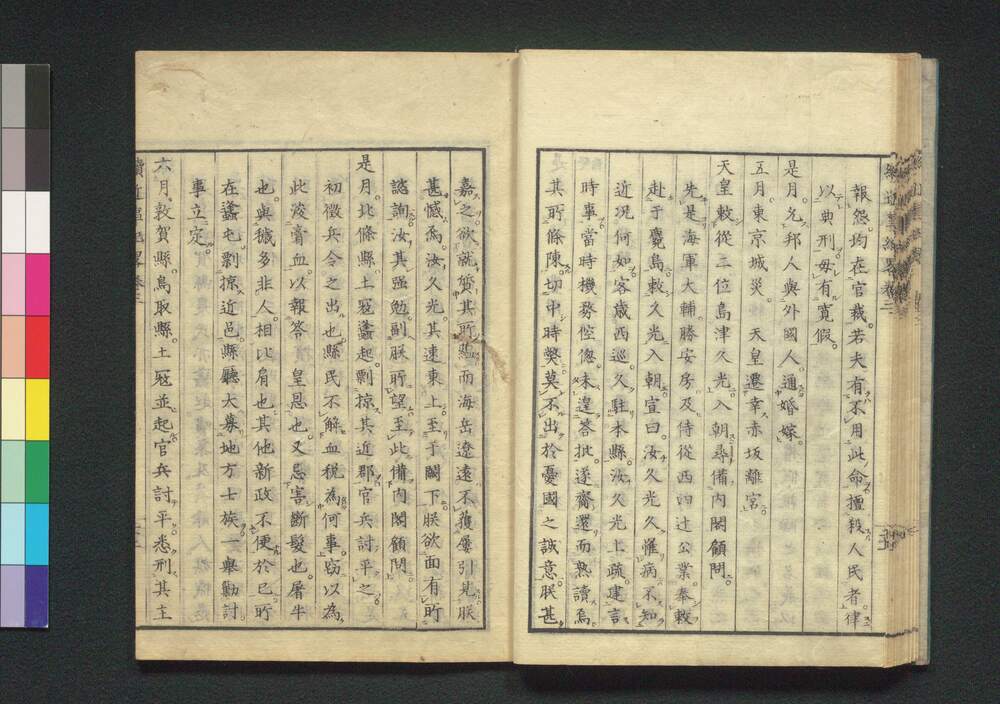 報怨。均在官裁。若夫有不用此命擅殺人民者。律
以典刑。毋有寬假。
是月。允邦人與外國人。通婚嫁。
五月。東京城災。天皇遷幸赤坂離宮。
天皇敕從二位島津久光。入朝尋備內閣顧問。
先是海軍大輔勝安房及侍從西四辻公業。奉敕
赴于麑島敕久光入朝。宣曰。汝久光久罹病。不知
近況何如客歲西巡。久駐本縣。汝久光上疏。建言
時事。當時機務倥傯。未遑答批。遂齎還而熟讀焉。
其所條陳。切中時弊。莫不出於憂國之誠意。朕甚
嘉之。欲就質其所懸而海岳遼遠。不獲屢引見。朕
甚憾焉。汝久光其速東上。至于闕下。朕欲面有所
諮詢。汝其强勉。副朕所望。至此備內閣顧問。
是月。北條縣土寇蠭起。剽掠其近郡。官兵討平之。
初徵兵令之出也。縣民不解血稅為何事。竊以為。
此浚膏血。以報答皇恩也。又忌害斷髮也。屠牛
也。與穢多非人。相比肩也。其他新政不便於己。所
在蠭屯。剽掠近邑。縣廳大募地方士族。一舉動討。
事立定。
六月。敦賀縣。鳥取縣。土寇並起。官兵討平。悉刑其主